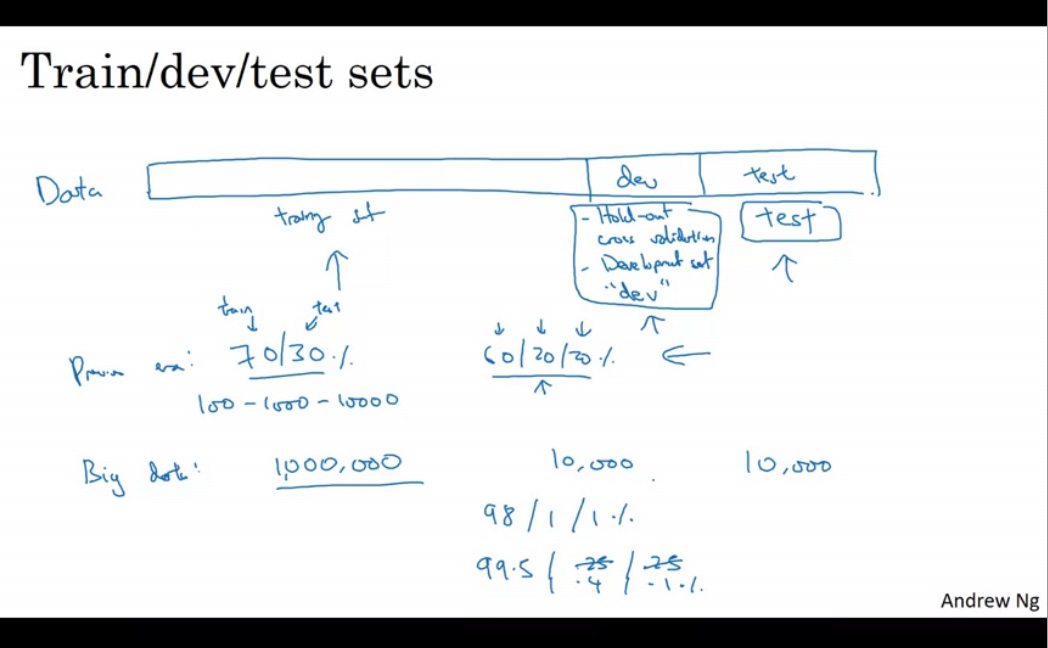 Train/dev/test sets
Data
dev
test
training set
- Hold-out
cross validation
- Development set
"dev"
test
train
test
Previous era:
70/30%
60/20/20%
100 - 1000 - 10000
Big data:
1,000,000
10,000
10,000
98/1/1%
99.5/.25/.25
.4 .1%
Andrew Ng